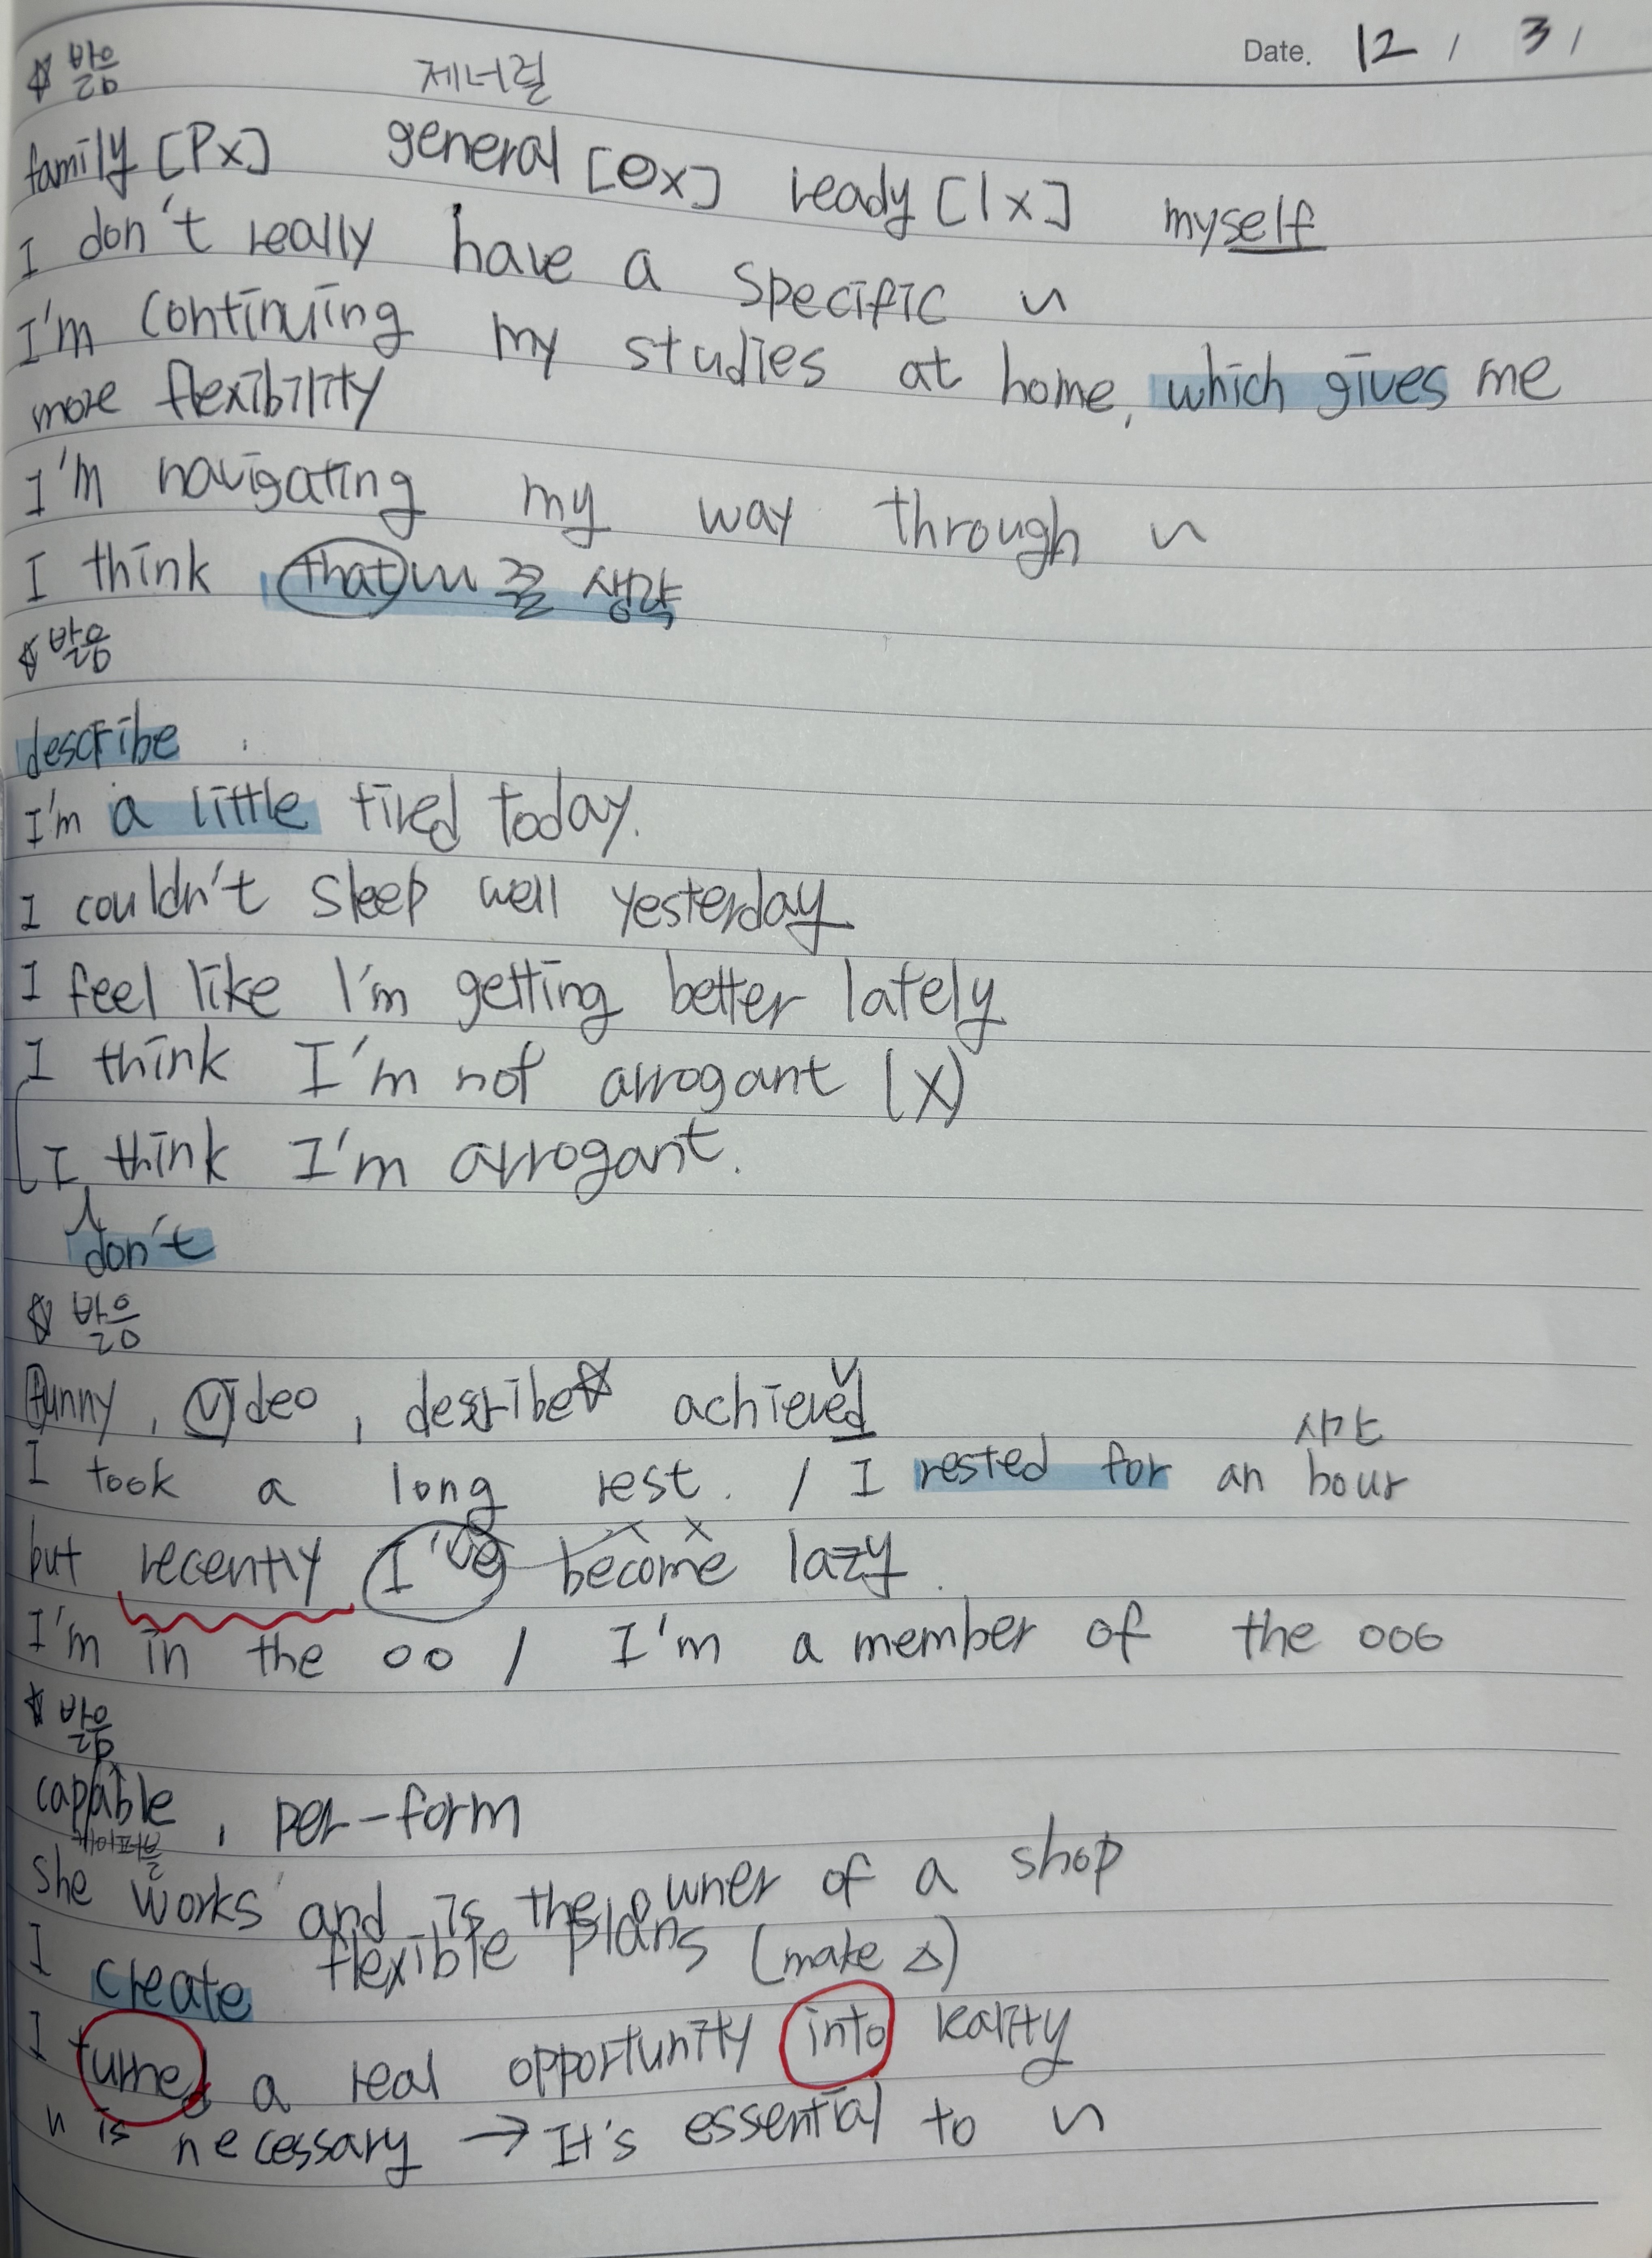 Date. 12 / 3 /
☆ 발음
제너럴
family [P x] general [e x] ready [l x] myself
I don't really have a specific ~
I'm continuing my studies at home, which gives me
more flexibility
I'm navigating my way through ~
I think that ~ 꼴 생략
☆ 발음
describe
I'm a little tired today.
I couldn't sleep well yesterday
I feel like I'm getting better lately
I think I'm not arrogant (X)
I think I'm arrogant.
don't
☆ 발음
funny, video, describe☆ achieved
사간
I took a long rest. / I rested for an hour
but recently I've become lazy.
I'm in the oo / I'm a member of the ooo
☆ 발음
capable, per-form
케이퍼블
she works and is the owner of a shop
I create flexible plans (make △)
I turned a real opportunity into
~ is necessary → It's essential to ~